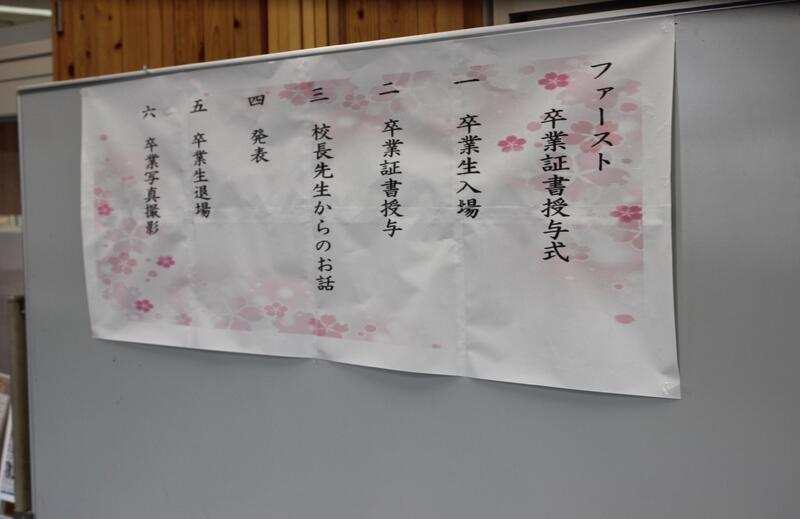 ファースト
卒業証書授与式
一 卒業生入場
二 卒業証書授与
三 校長先生からのお話
四 発表
五 卒業生退場
六 卒業写真撮影